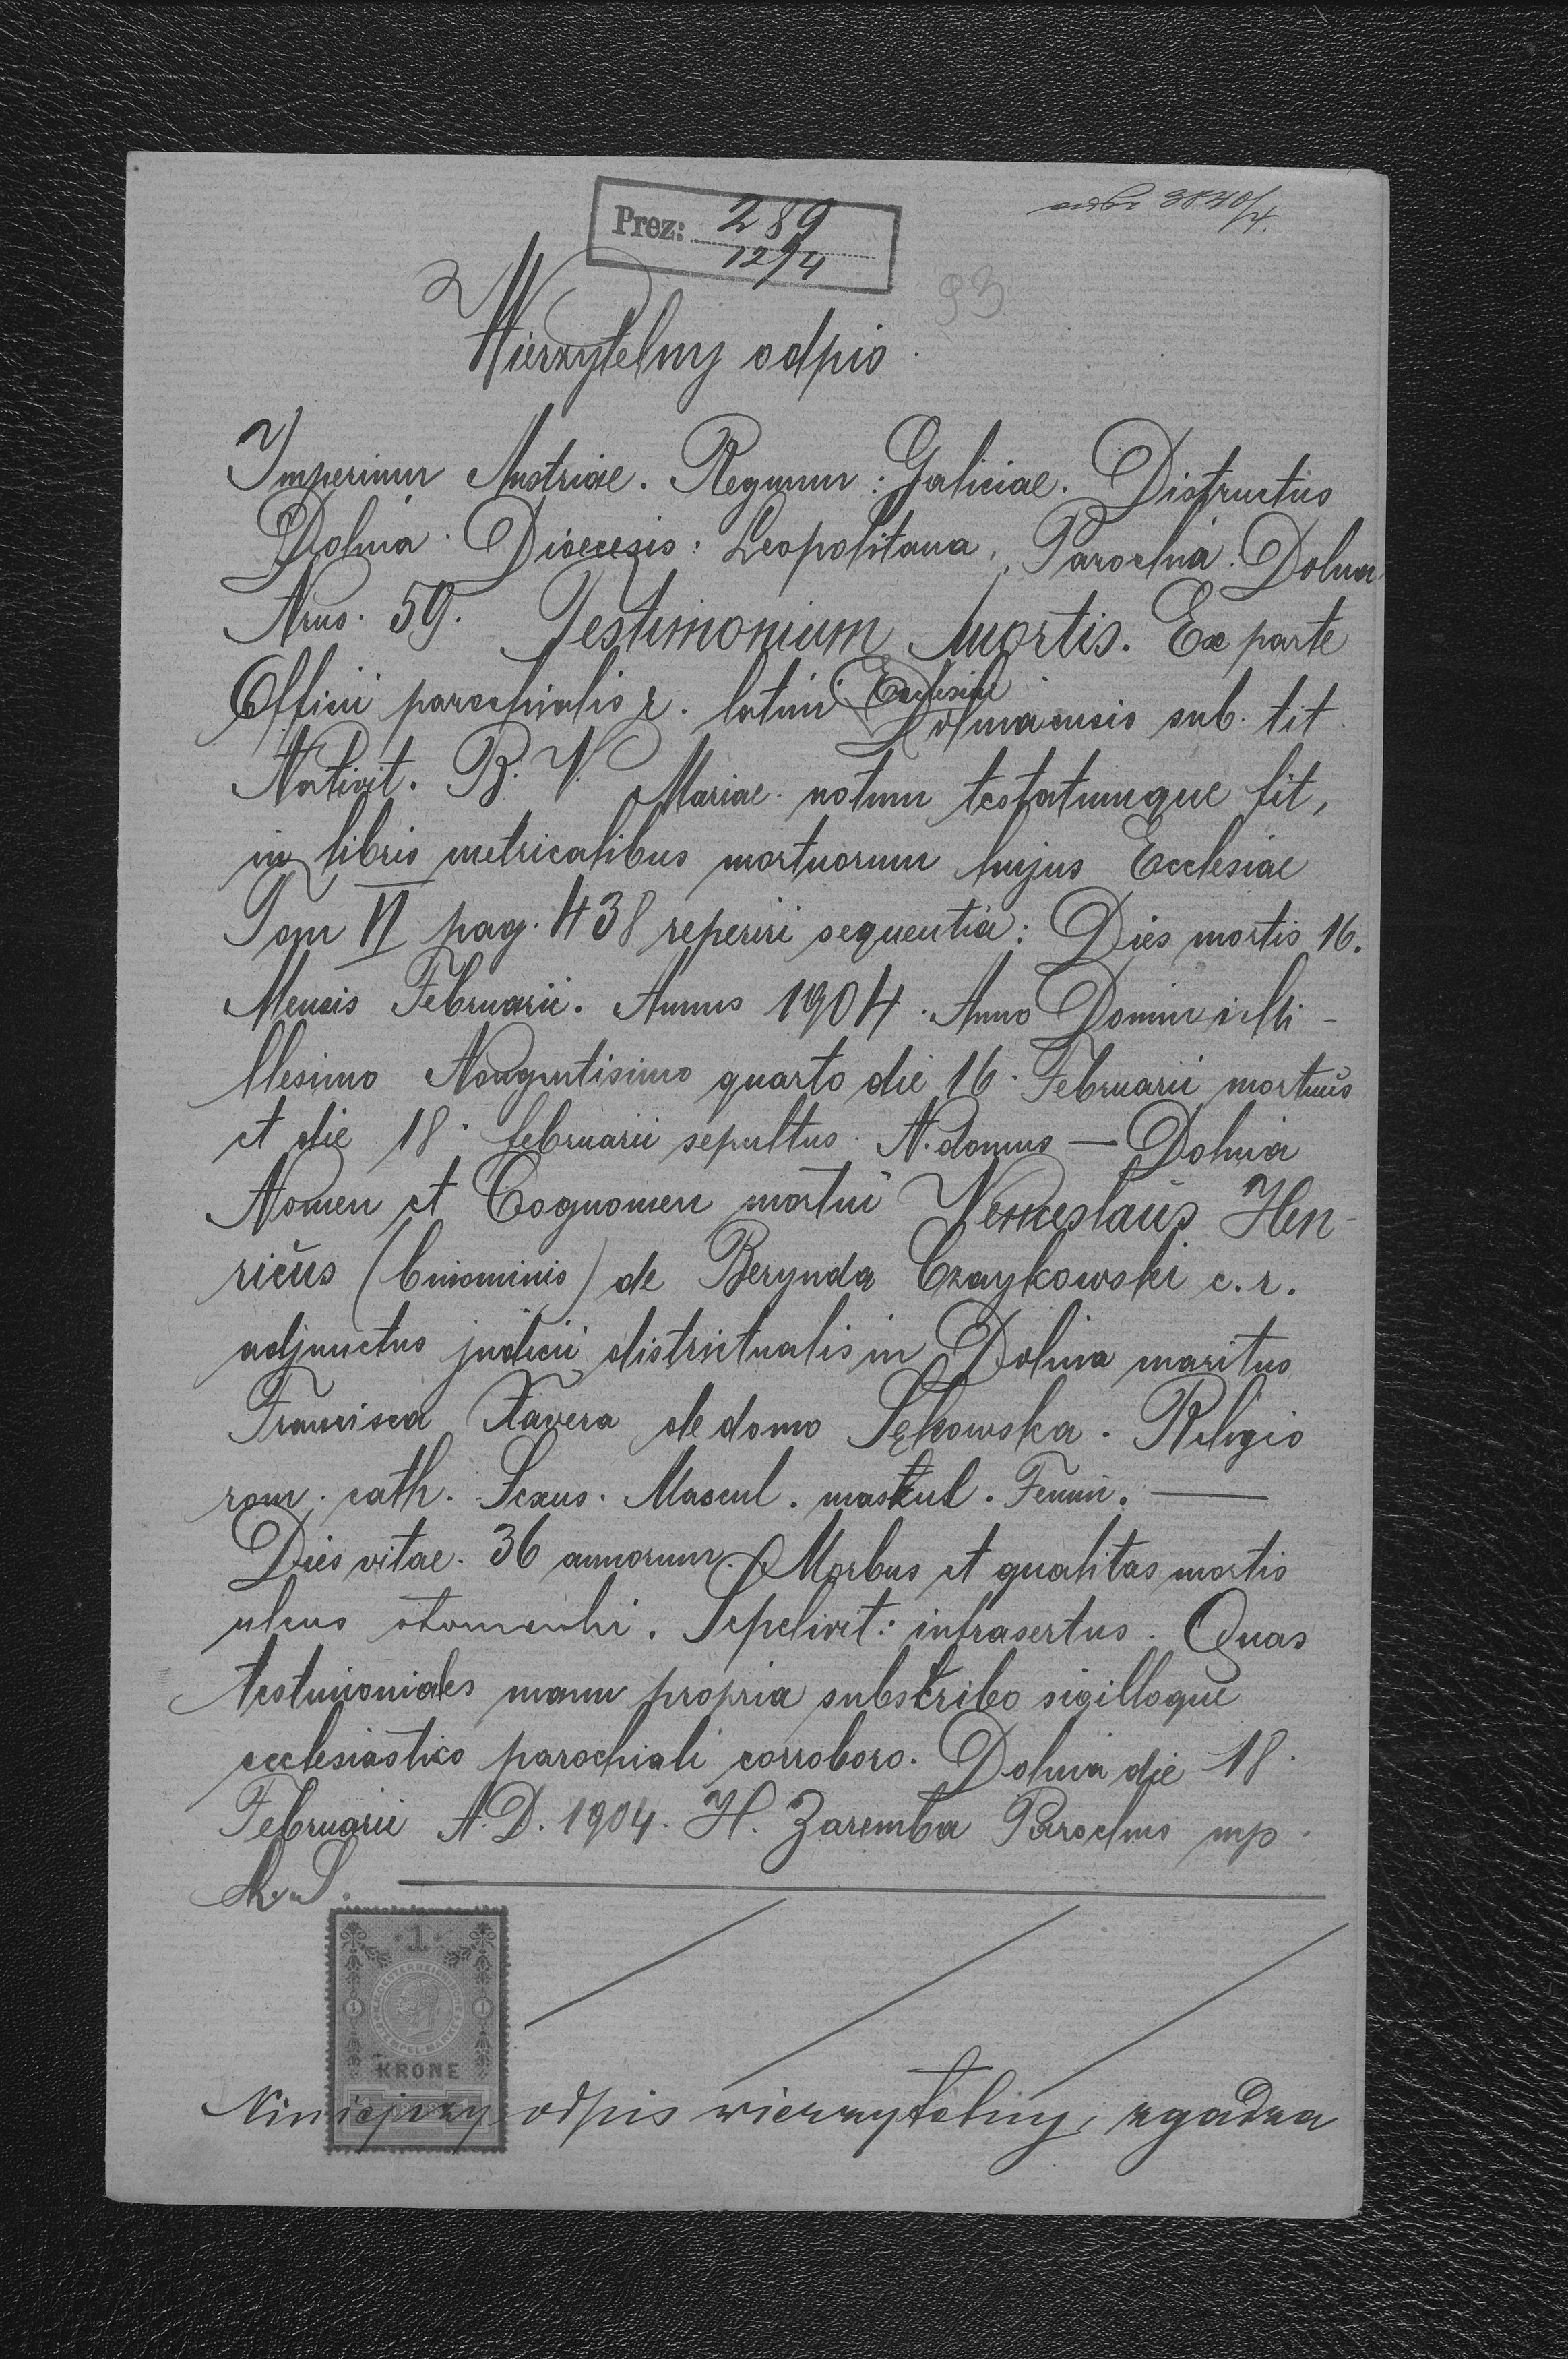 Prez: 289
12/4
3840/4.
93
Wierzytelny odpis.
Imperium Austriae. Regnum: Galiciae. Districtus
Dolina. Dioecesis: Leopolitana, Parochia. Dolina
Nrus. 59. Testimonium Mortis. Ex parte
Officii parochialis r. latini Ecclesiae Dolinaensis sub. tit
Nativit. B. V. Mariae. notum testatumque fit,
in libris metricalibus mortuorum hujus Ecclesiae
Tom VI pag. 438 reperiri sequentia: Dies mortis 16.
Mensis Februarii. Annus 1904. Anno Domini Mi-
llesimo Nongentisimo quarto die 16. Februarii mortuus
et die 18. februarii sepultus. N. domus — Dolina
Nomen et Cognomen mortui Venceslaus Hen-
ricus (binominis) de Berynda Czaykowski c. r.
adjunctus judicii districtualis in Dolina maritus
Francisca Xavera de domo Sękowska. Religio
rom. cath. Sexus. Mascul. maskul. Femin. —
Dies vitae. 36 annorum. Morbus et qualitas mortis
ulcus stomachi. Sepelivit: infrasertus. Quas
testimoniales manu propria subscribo sigilloque
ecclesiastico parochiali corroboro. Dolina die 18.
Februarii A. D. 1904. H. Zaremba Parochus mp.
L. S.
1
KRONE
Niniejszy odpis wierzytelny, zgadza